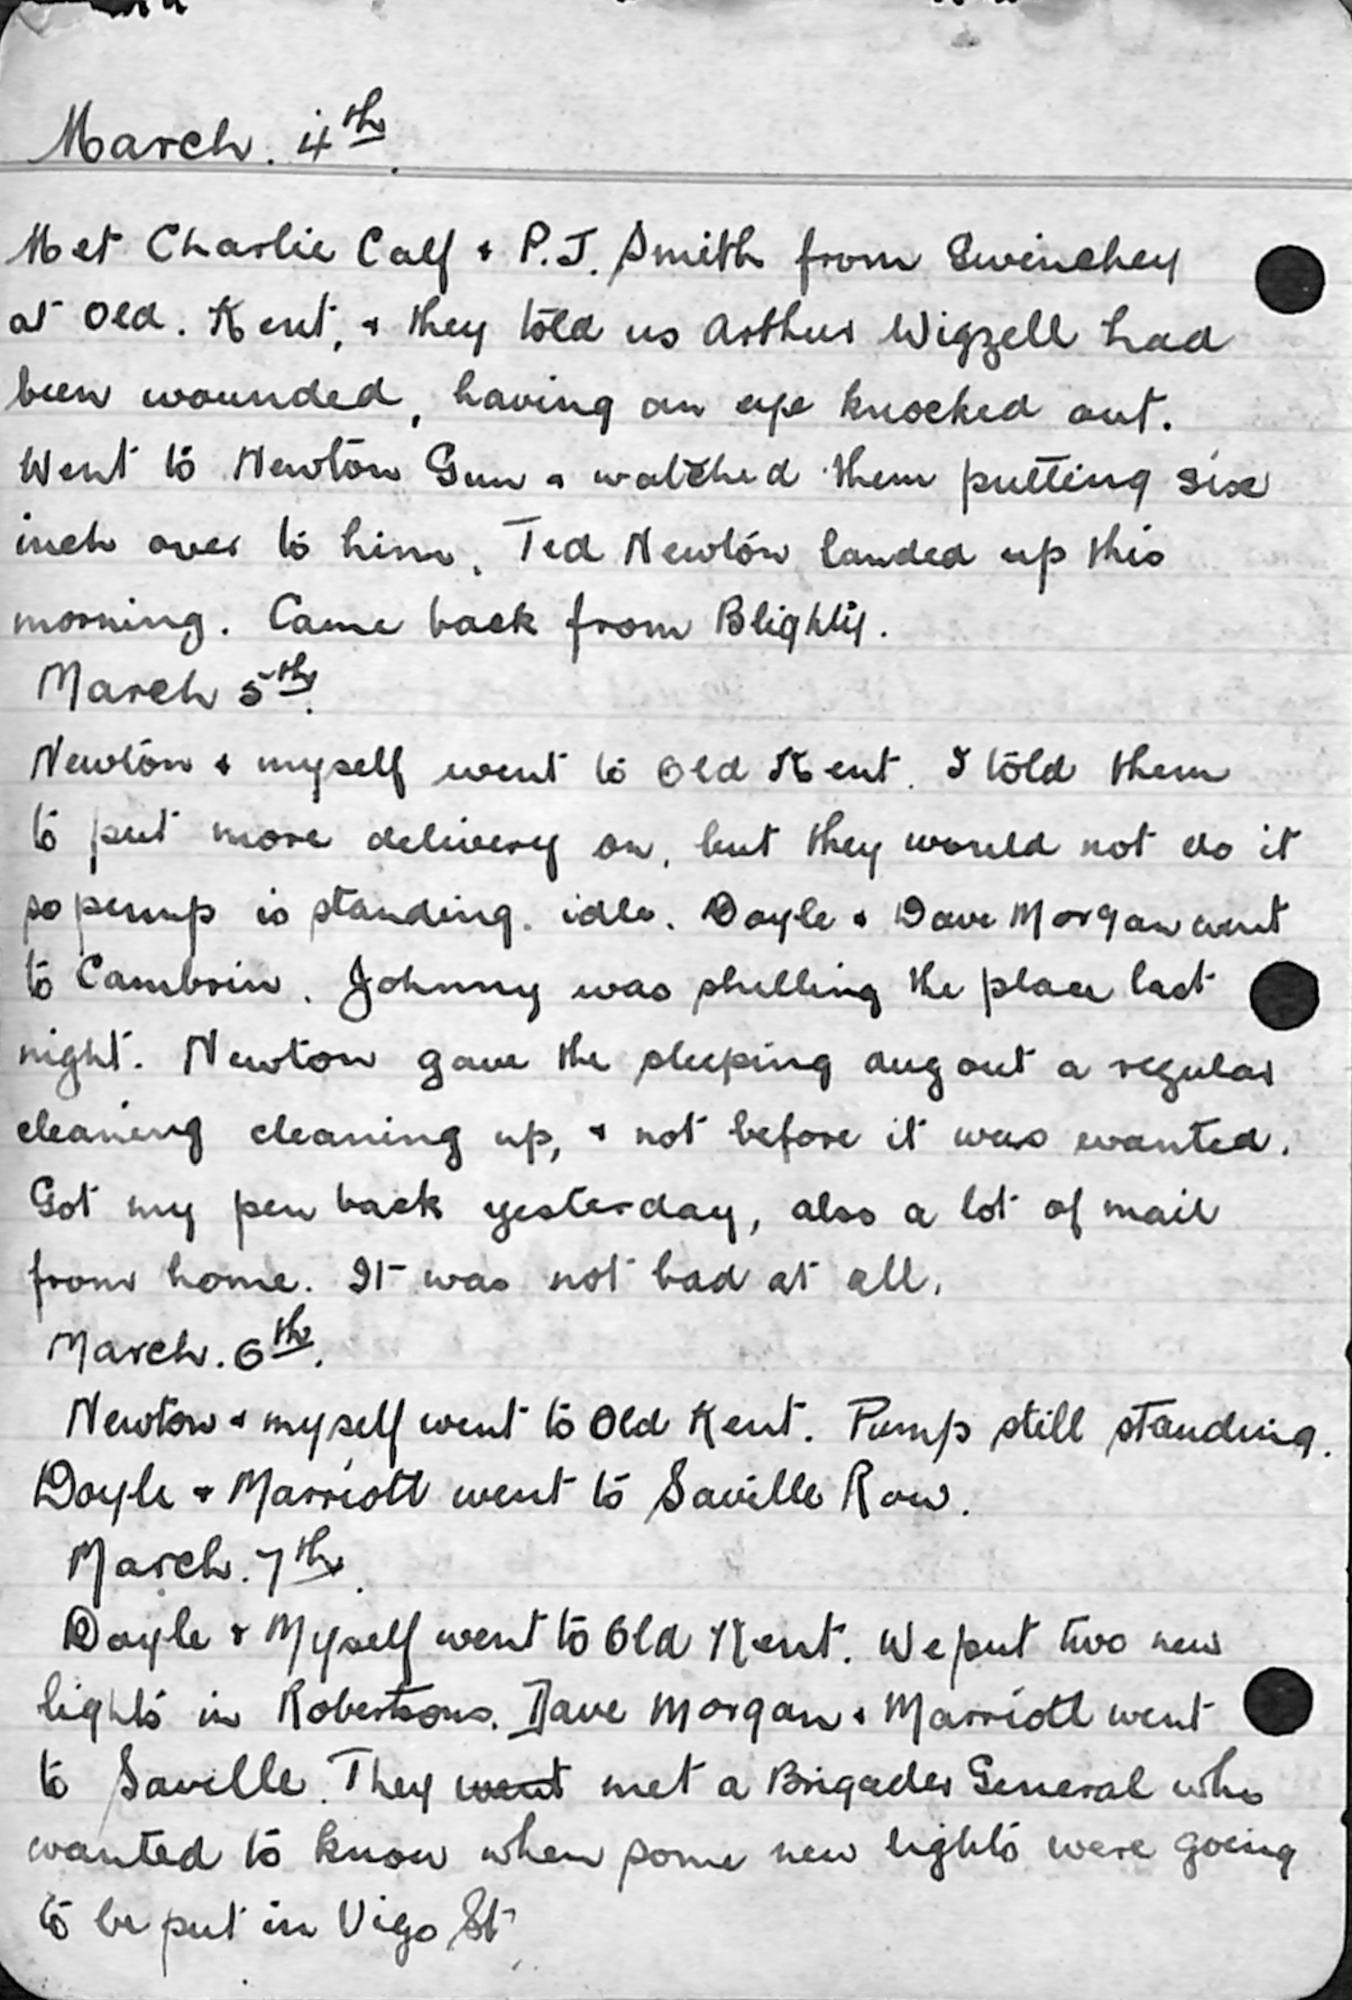 March. 4th.
Met Charlie Calf & P.J. Smith from Swinehey
at Old. Kent, & they told us Arthur Wigzell had
been wounded, having an eye knocked out.
Went to Newton Gun & watched them putting six
inch over to him. Ted Newton landed up this
morning. Came back from Blighty.
March 5th.
Newton & myself went to Old Kent. I told them
to put more delivery on, but they would not do it
so pump is standing. idle. Doyle & Dave Morgan went
to Cambrin. Johnny was shelling the place last
night. Newton gave the sleeping dug out a regular
cleaning cleaning up, & not before it was wanted.
Got my pen back yesterday, also a lot of mail
from home. It was not bad at all.
March. 6th.
Newton & myself went to Old Kent. Pump still standing.
Doyle & Marriott went to Saville Row.
March. 7th.
Doyle & Myself went to Old Kent. We put two new
lights in Robertsons. Dave Morgan & Marriott went
to Saville. They went met a Brigader General who
wanted to know when some new lights were going
to be put in Vigo St